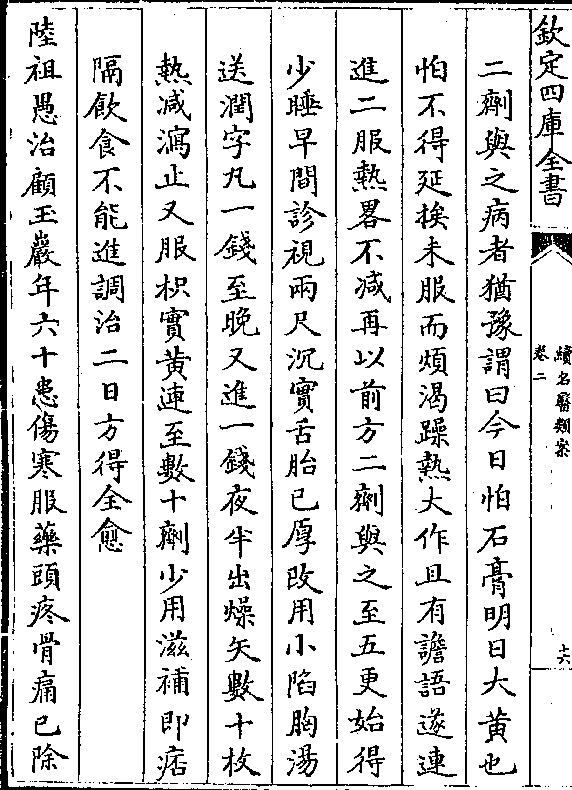 欽定四庫全書
續名醫類案
卷二
十六
二劑與之病者猶豫謂曰今日怕石膏明日大黃也
怕不得延挨未服而煩渴躁熱大作且有譫語遂連
進二服熱畧不减再以前方二劑與之至五更始得
少睡早間診視兩尺沉實舌胎已厚改用小陷胸湯
送潤字丸一錢至晚又進一錢夜半出燥矢數十枚
熱减瀉止又服枳實黃連至數十劑少用滋補即痞
隔飲食不能進調治二日方得全愈
陸祖愚治顧玉巖年六十患傷寒服藥頭疼骨痛已除